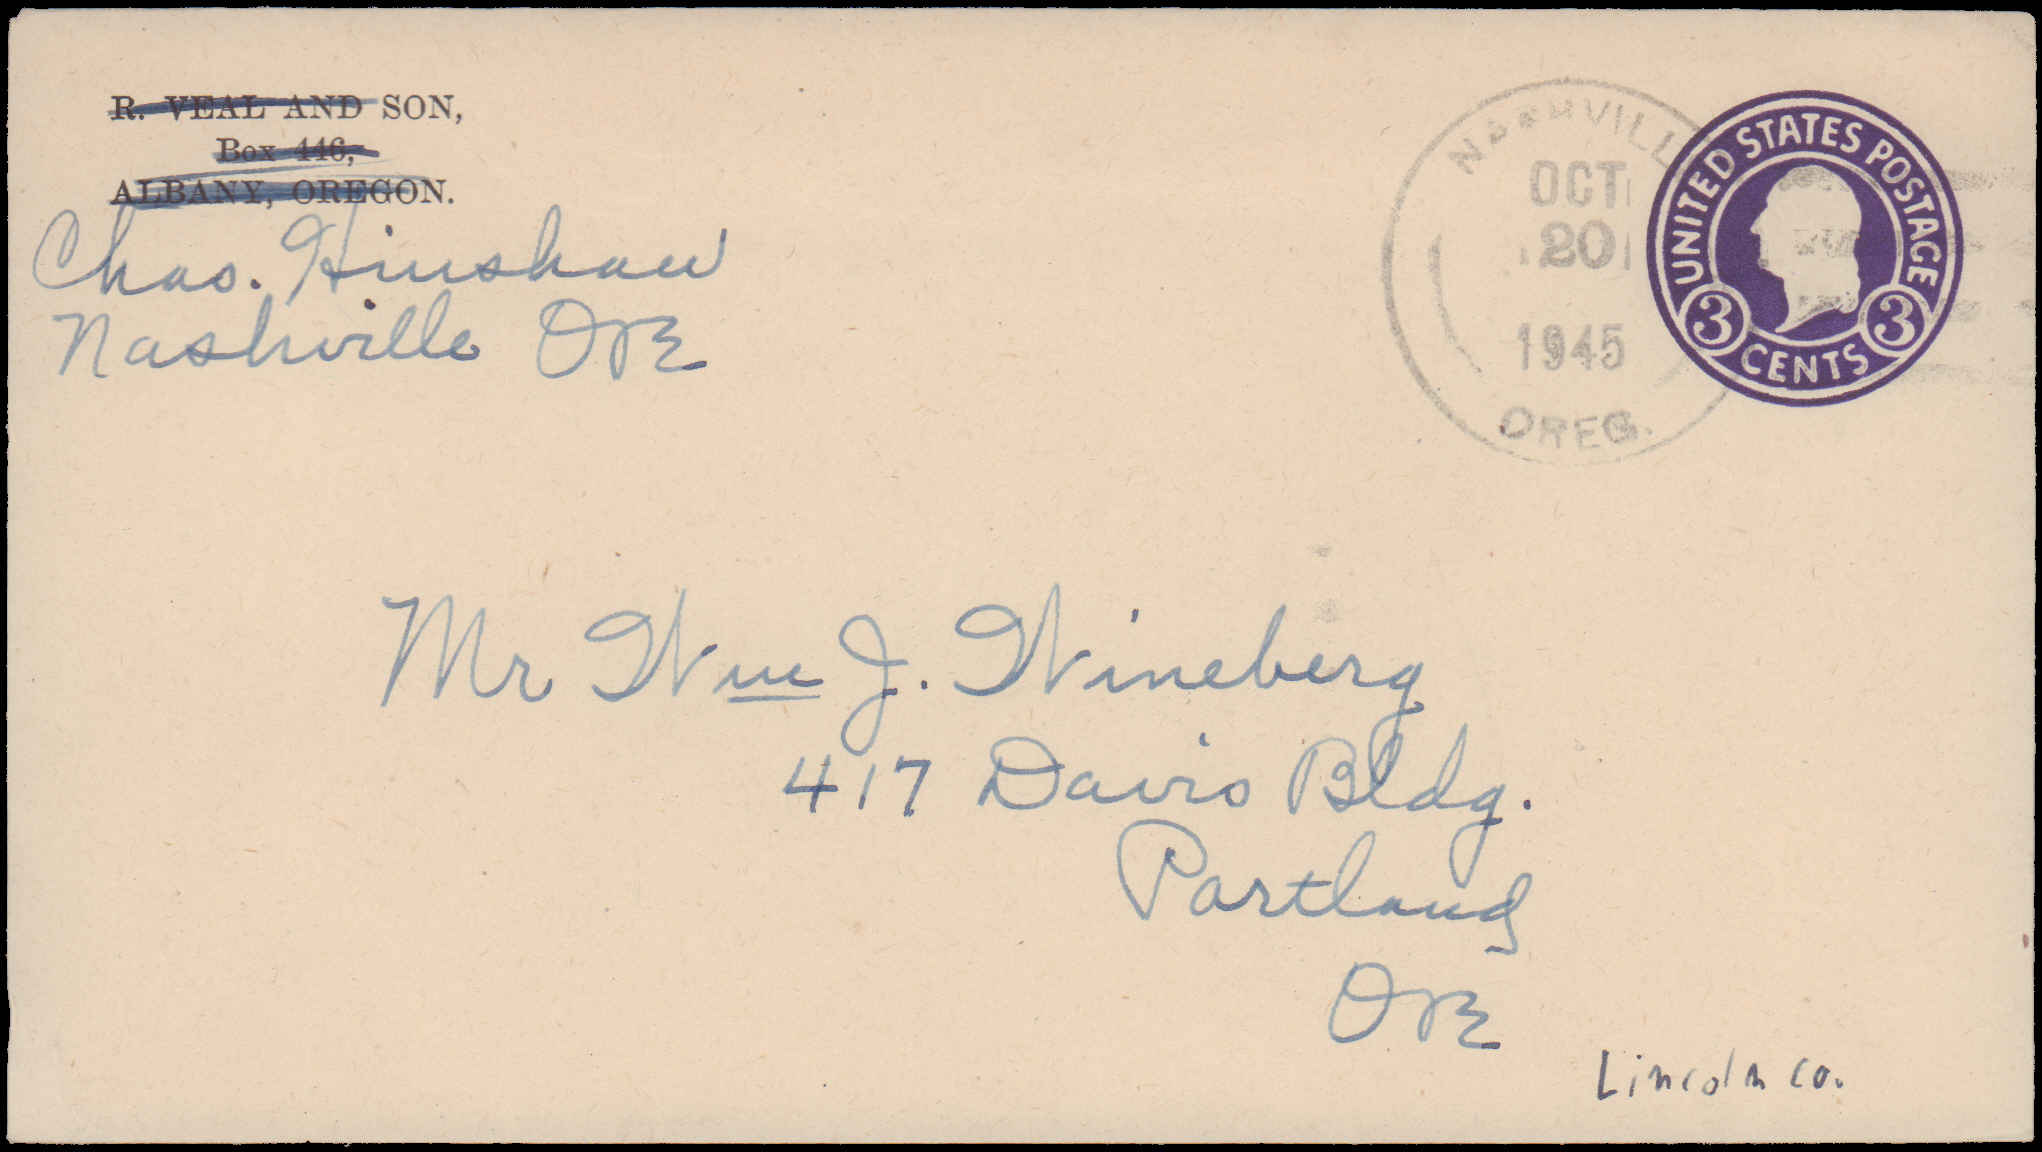 R. VEAL AND SON,
Box 446,
ALBANY, OREGON.
Chas. Hinshaw
Nashville ORE
NASHVILLE
OCT
20
1945
OREG.
UNITED STATES POSTAGE
3 CENTS 3
Mr Wm J. Wineberg
417 Davis Bldg.
Portland
ORE
Lincoln co.